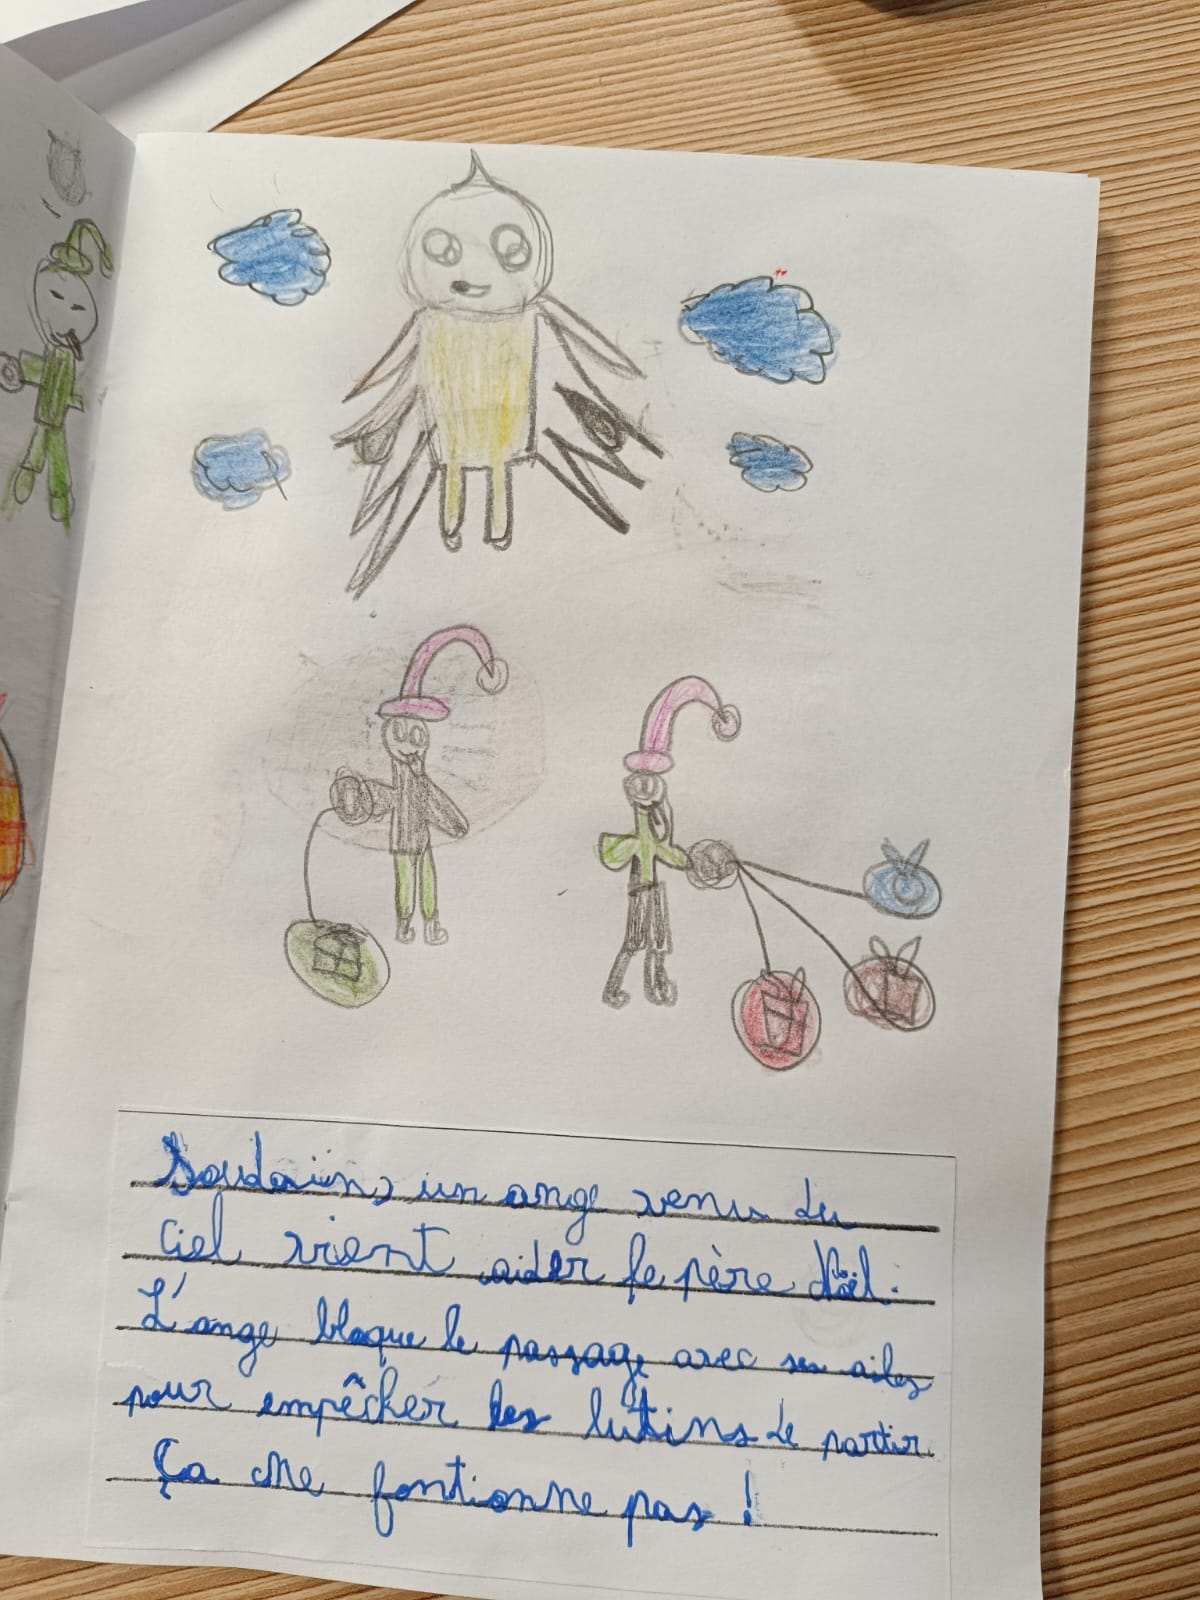 Soudain, un ange venu du
ciel vient aider le père Noël.
L'ange bloque le passage avec ses ailes
pour empêcher les lutins de partir.
Ça ne fontionne pas !